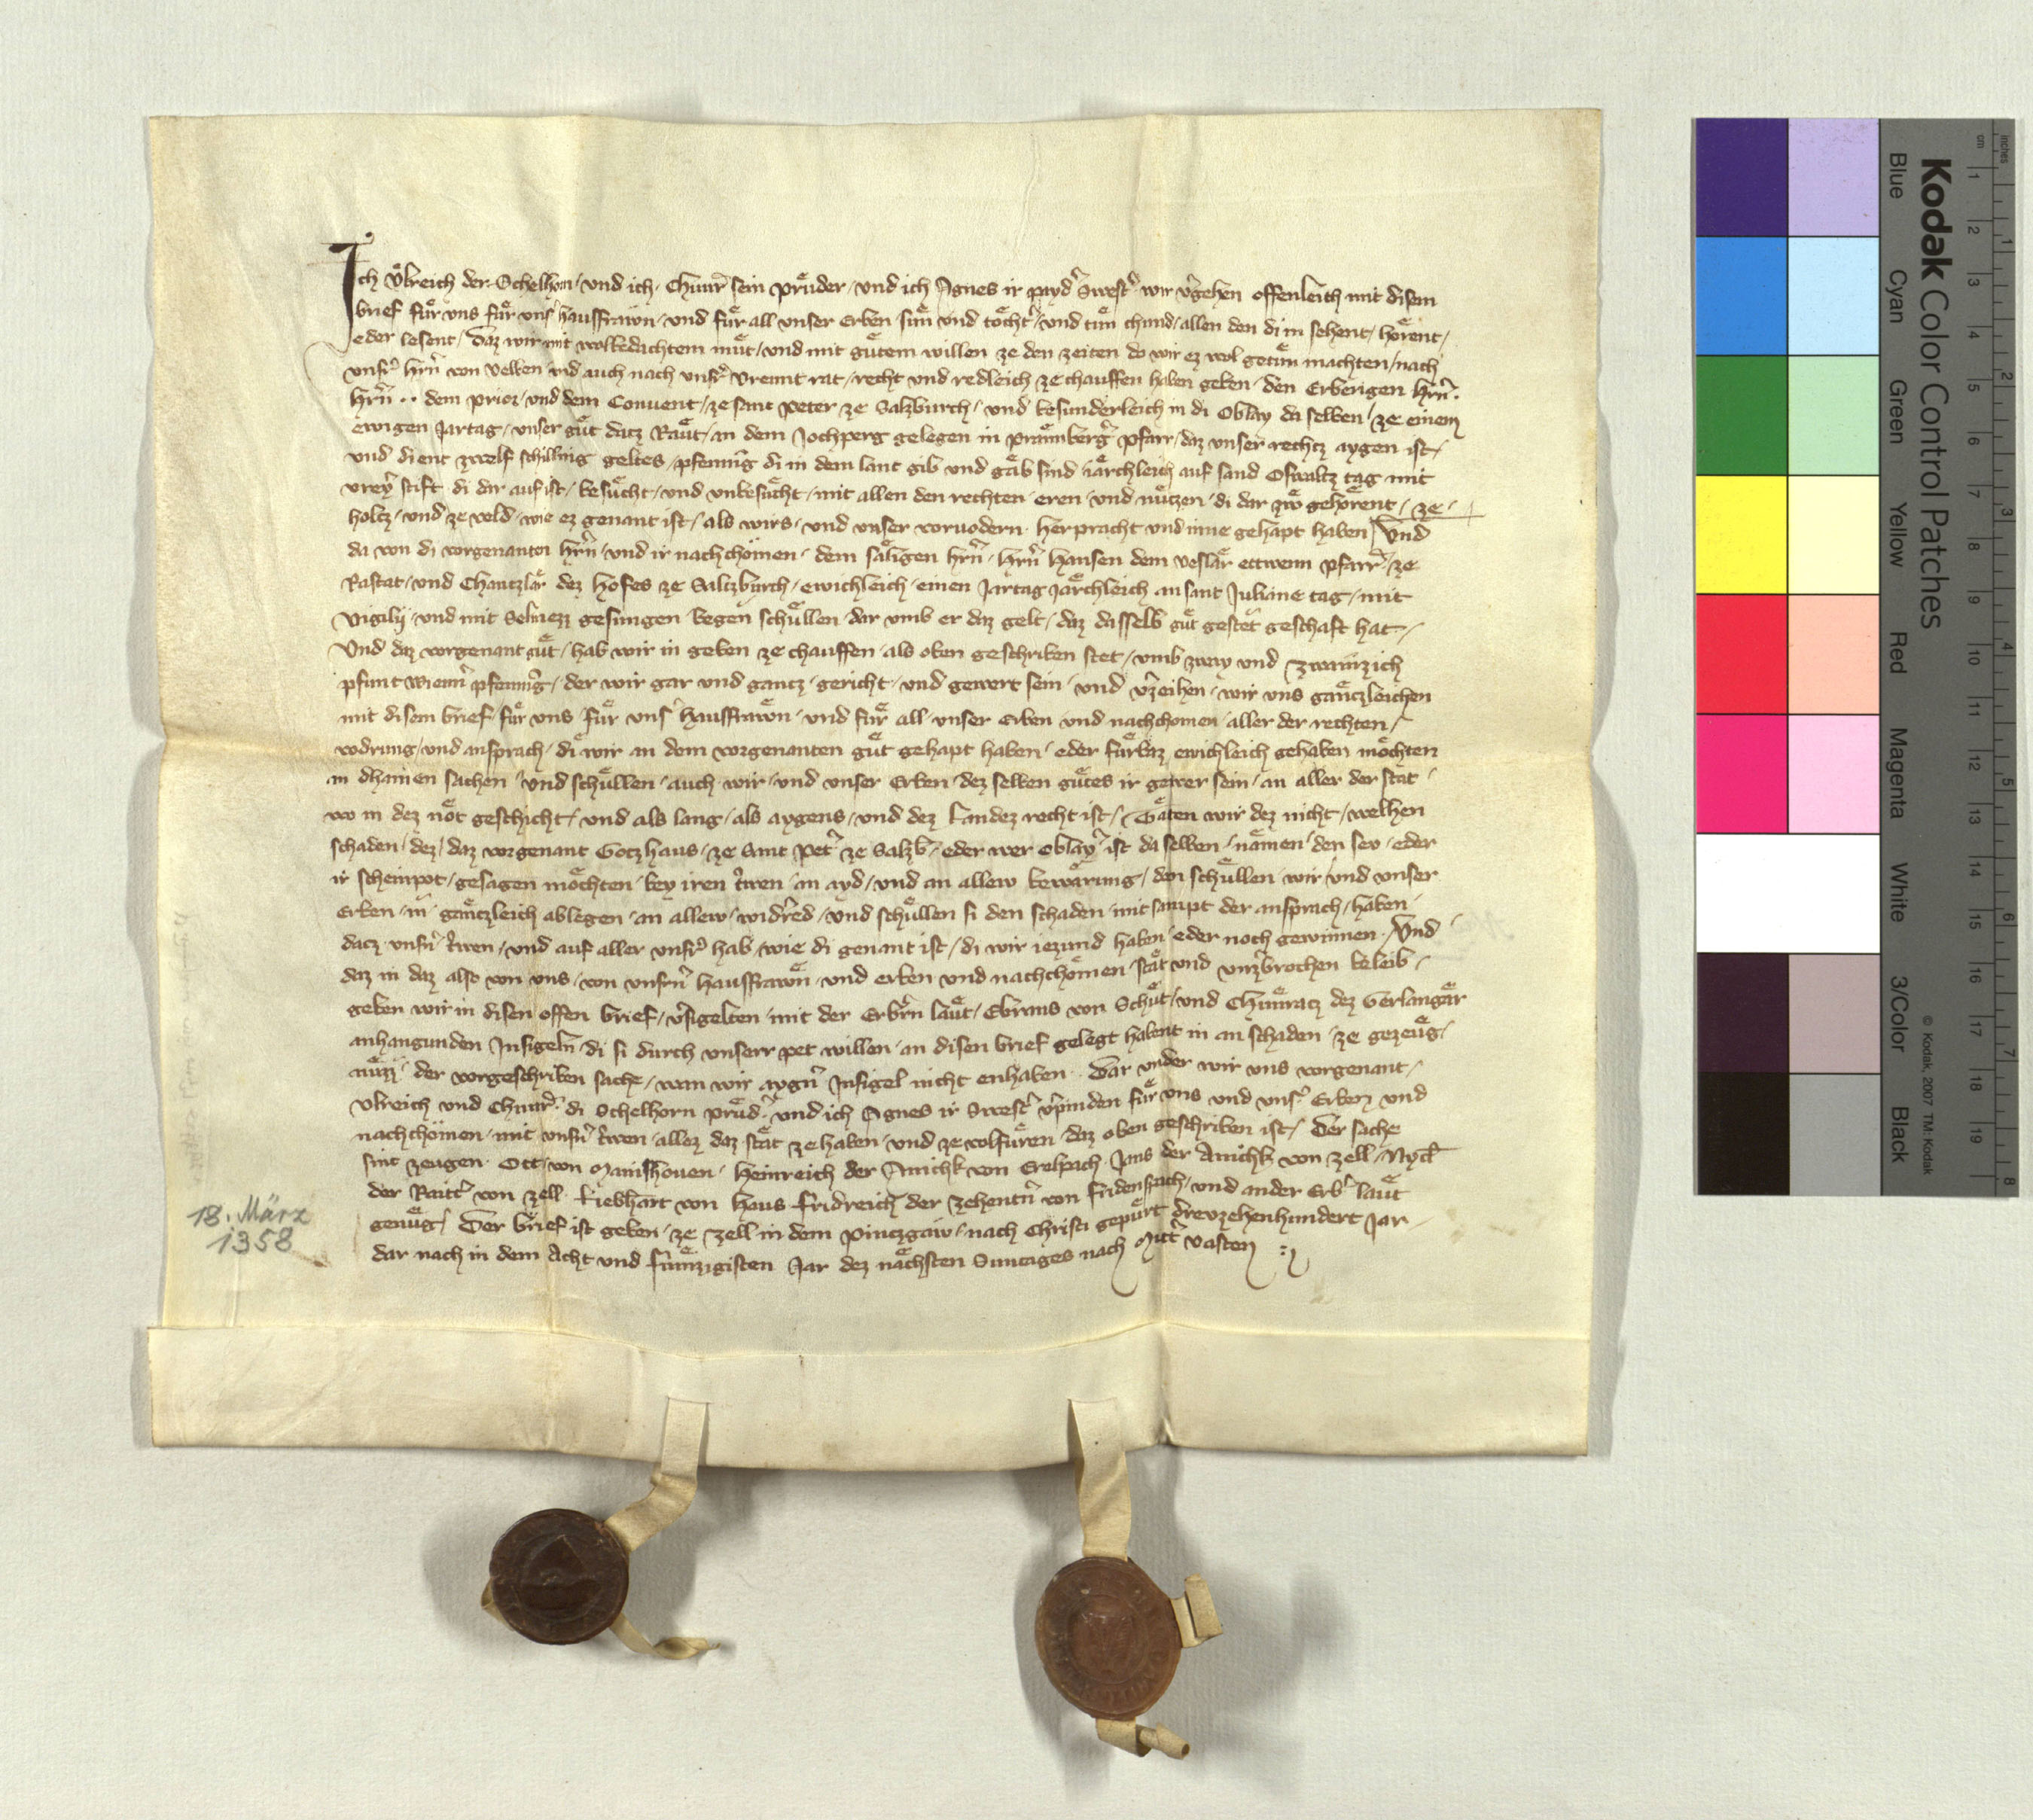 Ich Ůlreich der Schelhorn / und ich Chunr̄ sein průder / und ich Agnes ir payd' Swest' wir v'gehen offenleich mit disem
brief fůr uns fůr uns' hausfrawn / und fůr all unser Erben sůn und tocht' / und tůn chund / allen den di in sehent / hörent /
oder lesent / Daz wir mit wolbedachtem můt / und mit gůtem willen ze den zeiten do wir ez wol getůn machten / nach
uns's h'rn von Velben und auch nach uns'r vreunt rat / recht und redleich ze chauffen haben geben / den Erberigen h'rn.
h'rn .. dem prior und dem Convent / ze sant Peter ze Salzburch / und besunderleich in di Oblay da selben / ze einem
ewigen Jartag / unser gůt datz Raůt / an dem Jochperg gelegen in pramberg' pfarr / daz unser rechtz aygen ist /
und dient zwelf schilling geltes / pfenning di in dem lant gib und gäb sind iärchleich auf sand Oswaltz tag mit
vrey' stift di dar auf ist / besůcht / und unbesůcht / mit allen den rechten eren und nutzen / di dar zů gehörent / ze
holtz / und ze veld / wie ez genant ist / als wirs / und unser vorvodern herpracht und inne gehapt haben / Und
da von di vorgenanten h'rn / und ir nachchömen / dem säligen h'rn / h'rn Hansen dem Veslär ettwenn pfarr' / ze
Rastat / und Chantzlär dez hofes ze Saltzburch / ewichleich / einen Jartag järchleich an sant Juliane tag / mit
Vigilij / und mit Selmezz gesungen / begen schullen / dar umb er daz gelt / daz dasselb gůt gestet geschaft hat /
Und daz vorgenant gůt / hab wir in geben ze chauffen / als oben geschriben stet / umb zway und zwainzich
pfunt wienn' pfenning / der wir gar und gantz / gericht / und gewert sein / und v'zeihen / wir uns gäntzleichen
mit disem brief / fůr uns fůr uns' hausfrawn / und fůr all unser Erben und nachchomen / aller der rechten /
vodrung / und ansprach / di wir an dem vorgenanten gůt gehapt haben / oder fůrbaz ewichleich gehaben möchten
in dhainen sachen / und schůllen / auch wir / und unser Erben / dez selben gůtes ir gewer sein / an aller der stat /
wo in dez not geschicht / und als lang / als aygens / und dez Landez recht ist / Täten wir dez nicht / welhen
schaden / dez / daz vorgenant Gotzhaus / ze Sant Pet' ze Salzb' / oder wer Oblay' ist da selben / nämen / den sev / oder
ir scheinpot / gesagen möchten / bey iren trewn / an ayd / und an allew bewärung / den schullen wir und unser
Erben / in gäntzleich ablegen / an allew / widerred / und schullen si den schaden / mit sampt der ansprach / haben
datz unsern trewn / und auf aller uns'r hab / wie di genant ist / di wir iezund haben oder noch gewinnen / Und
daz in daz also von uns / von unsern hausfrawn / und erben und nachchömen / stät und unzebrochen beleib /
geben wir in disen offen brief / v'sigelten / mit der Erbern läut / Ebrans von Schůt / und Chunratz dez Verlangär
anhangunden Insigeln di si durch unserr pet willen / an disen brief gelegt habent in an schaden / ze gezeug /
nutz der vorgeschriben sache / wan wir aygen Insigel nicht enhaben. Dar under wir uns vorgenant /
Ulreich und Chunr̄. di Schelhorn průd' und ich Agnes ir Swest' v'pinden fůr uns und uns' Erben und
nachchömen / mit unsern trewn / allez daz stät ze haben / und ze volfůren / daz oben geschriben ist / Der sache
sint zeugen. Ott von Mainshoven / Heinreich der Amichk von Erelpach Jans der Amichk von Zell / Nycl
der Raitt' von Zell Liebhart von Haus Fridreich der zehentn' von Fridenspach / und ander Erb' läut
genůg / Der brief ist geben / ze Zell in dem Pintzgaw / nach Christi gepůrt drevzehenhundert Jar
dar nach in dem Acht und fůmzigisten Jar dez nächsten Suntages nach Mitt' vasten
18. März
1358
Kodak Color Control Patches
Blue Cyan Green Yellow Red Magenta White 3/Color Black
© Kodak, 2007 TM: Kodak
cm 1 2 3 4 5 6 7 8 9 10 11 12 13 14 15 16 17 18 19
inches 1 2 3 4 5 6 7 8